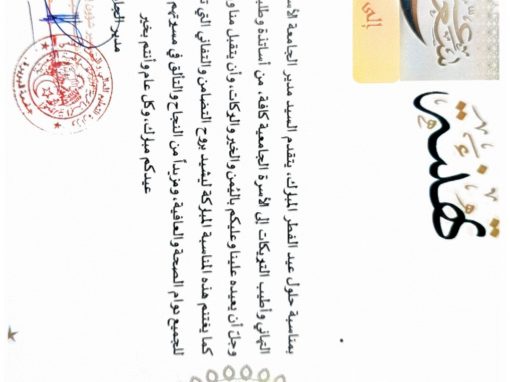 إلى
تهنئة
بمناسبة حلول عيد الفطر المبارك، يتقدم السيد مدير الجامعة
التهاني وأطيب التبريكات إلى الأسرة الجامعية كافة، من أساتذة
وجل أن يعيده علينا وعليكم باليُمن والخير والبركات، وأن يتقبل منا
كما يغتنم هذه المناسبة المباركة ليشيد بروح التضامن والتفاني التي
للجميع دوام الصحة والعافية، ومزيداً من النجاح والتألق في
عيدكم مبارك، وكل عام وأنتم بخير
مدير